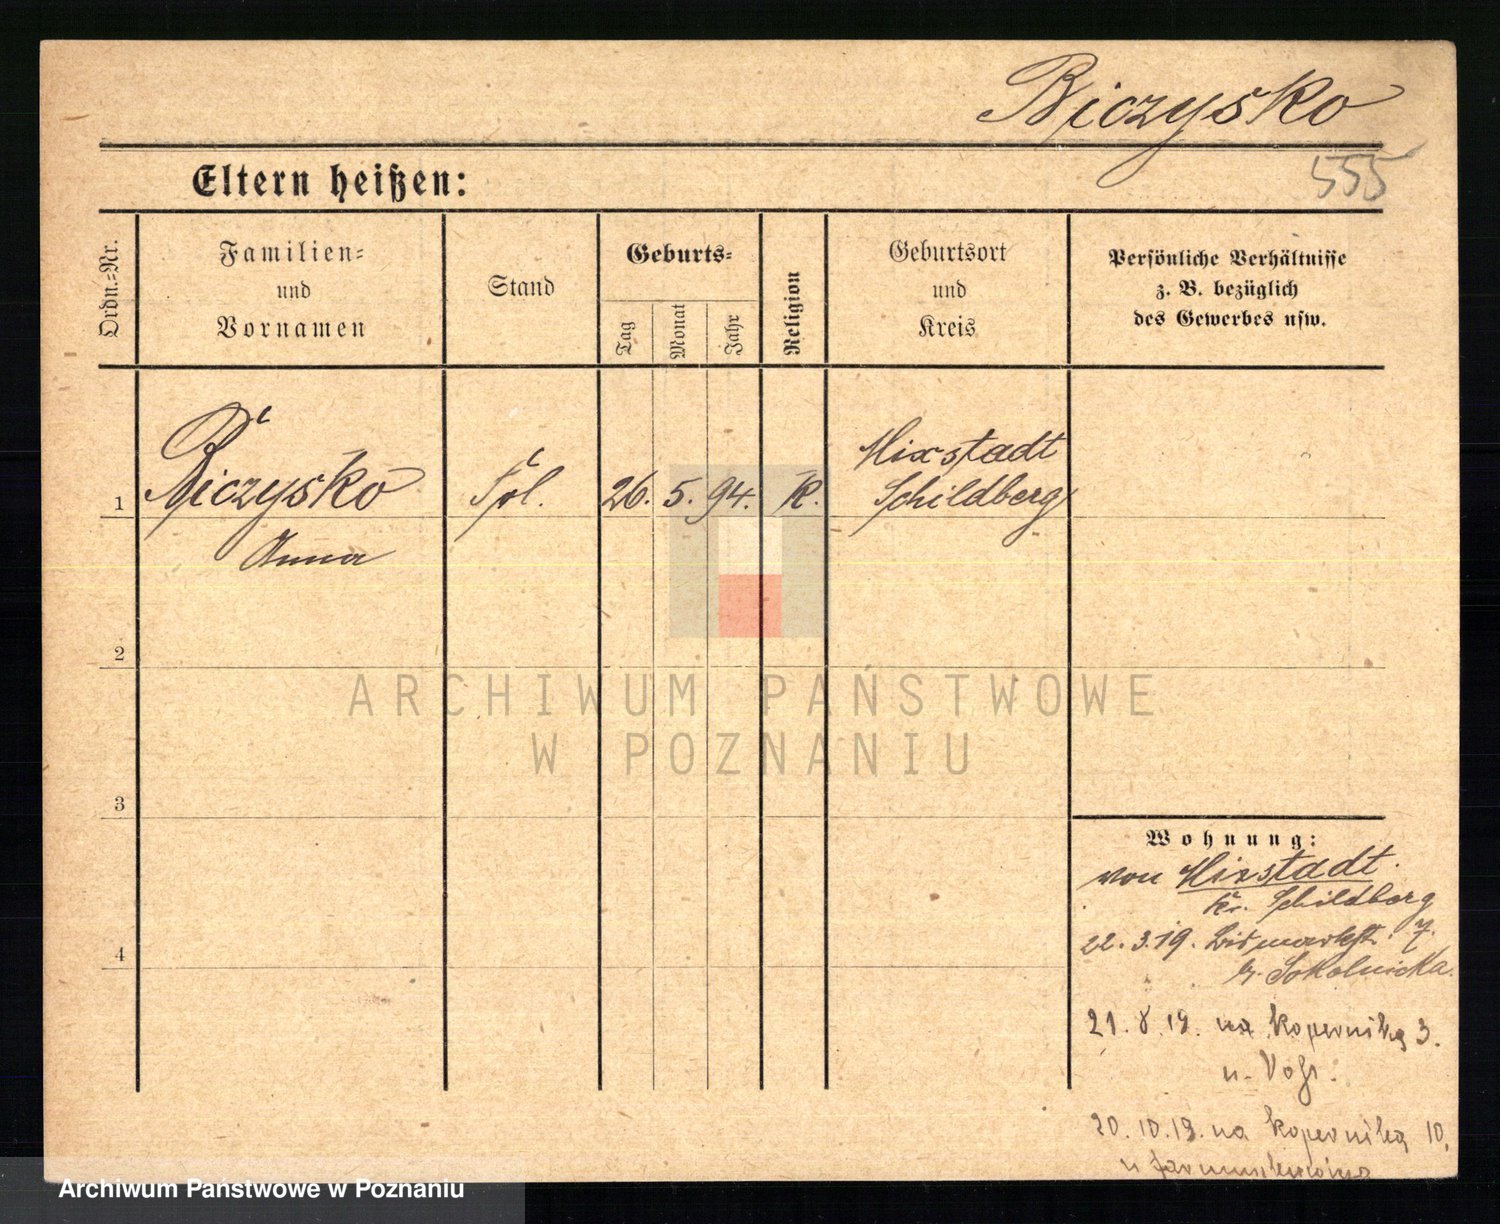 Biczysko
555
Eltern heißen:
Ordn.-Nr.
Familien-
und
Vornamen
Stand
Geburts-
Tag
Monat
Jahr
Religion
Geburtsort
und
Kreis
Persönliche Verhältnisse
z. B. bezüglich
des Gewerbes usw.
1
Biczysko
Anna
26. 5. 94. K.
Mixstadt
Schildberg
2
3
4
ARCHIWUM PAŃSTWOWE
W POZNANIU
Wohnung:
von Mixstadt.
Kr. Schildberg
22.3.19. Bismarckstr. 7.
b. Sokolnicka.
21.8.19. na Kopernika 3.
u.
20.10.19. na Kopernika 10,
u
Archiwum Państwowe w Poznaniu